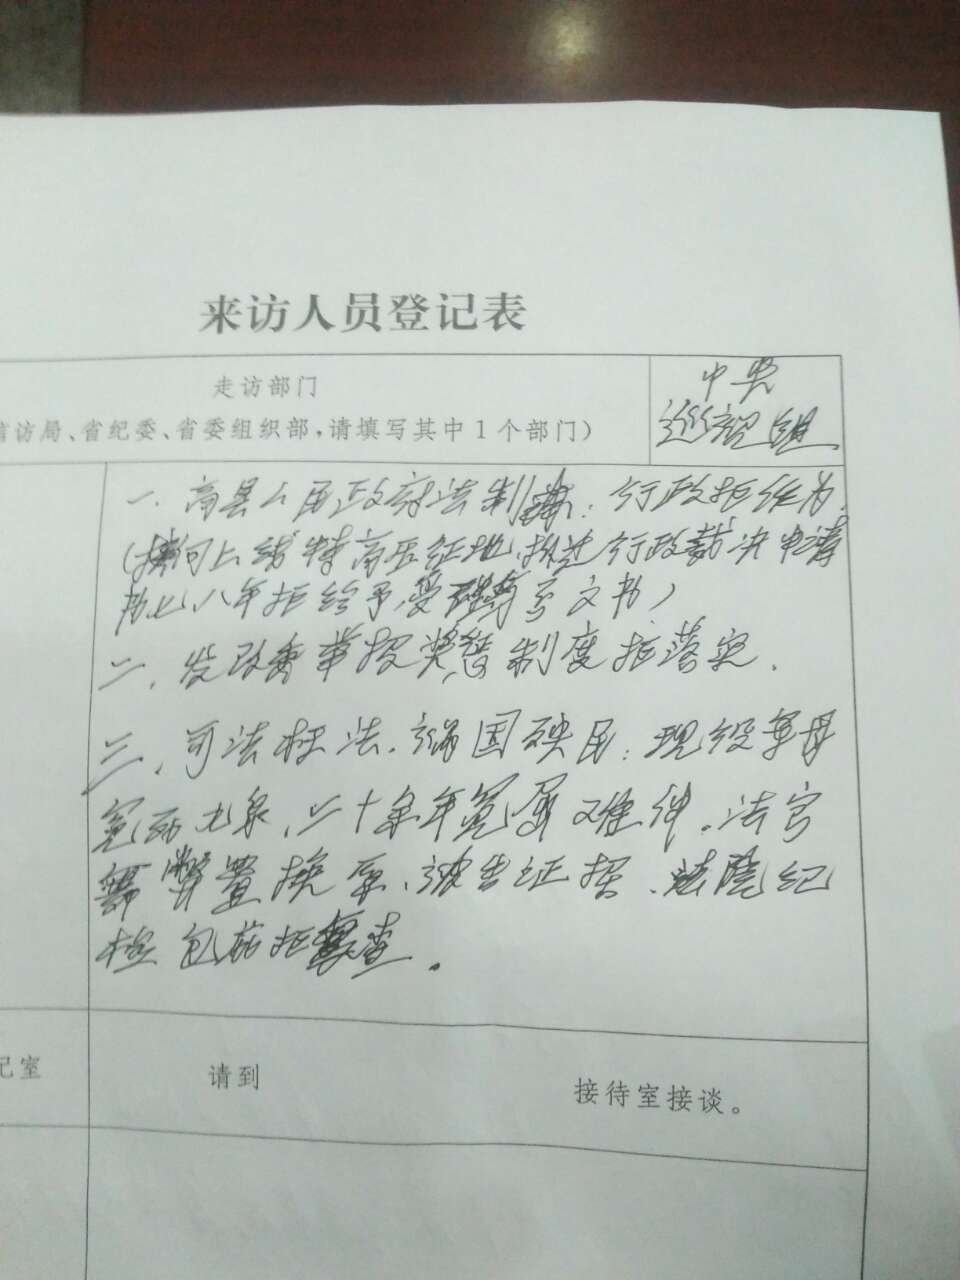 来访人员登记表
走访部门
信访局、省纪委、省委组织部，请填写其中1个部门）
中央
巡视组
一、高县人民政府法制办：行政拒作为
向上线特高压征地，拟送行政裁决申请
七八年拒给予受理等文书）
二、发改委举报奖惩制度拒落实.
三、司法枉法、祸国殃民：现役军母
冤死九泉、二十余年冤案难伸。法官
舞弊置换原、被告证据、法院纪
检包庇拒复查。
记室
请到
接待室接谈。